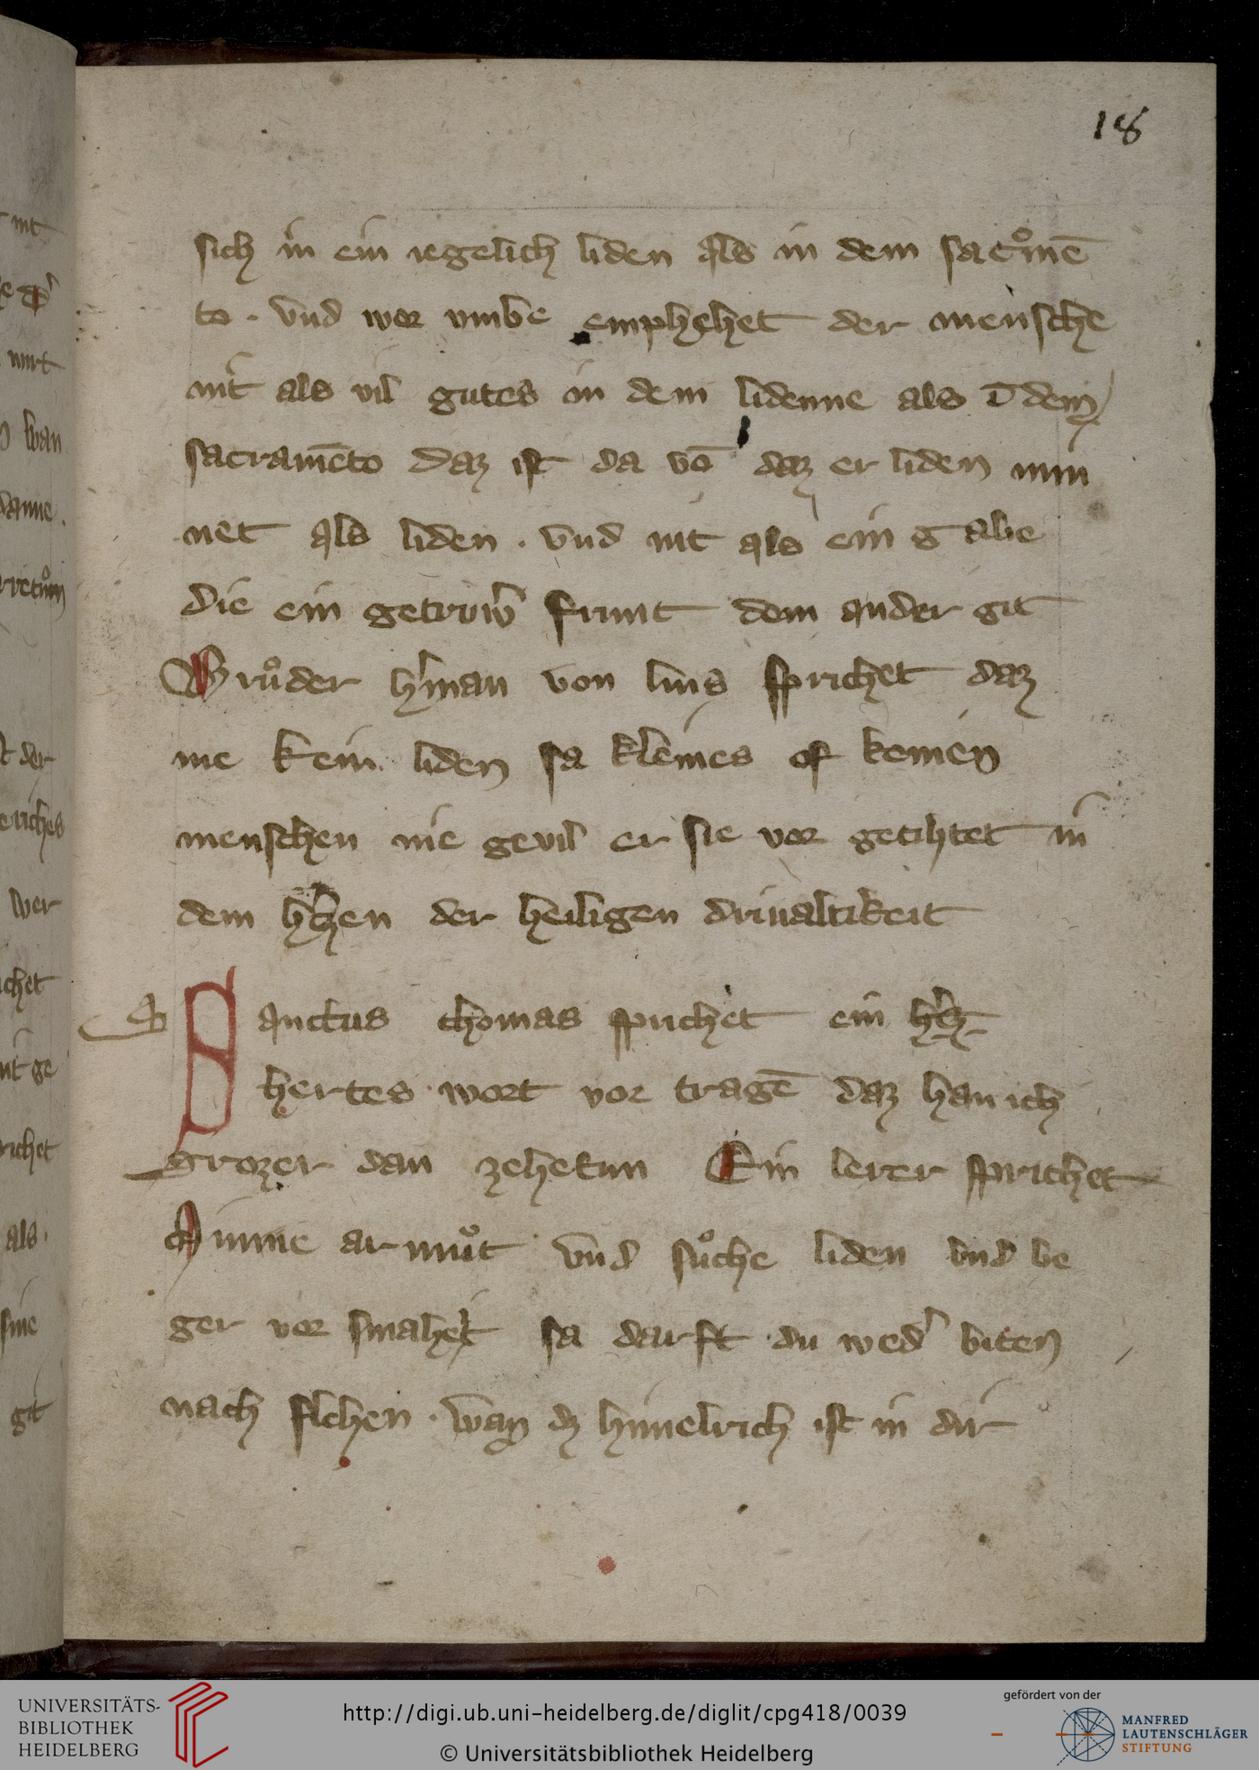 18
sich in ein iegelich liden als in dem sac͛mē
to . vnd wor vmbe emphehet der mensche
nit als vil gutes in dem lidenne als ī dem
sacramēto daz ist da vō daz er liden nim
net als liden . vnd nit als ein gabe
die ein getruw͛ frunt dem ander git
Bruͦder h͛man von lins sprichet daz
nie kein liden sa kleines of keinen
menschen nie gevil er sie vor getihtet in
dem h͛tzen der heiligen driualtikeit
Sanctus thomas sprichet ein
hertes wort vor tragē daz han ich
grozer dan zehetun Ein lerer sprichet
Minne armuͦt vnd suͦche liden vnd be
ger vor smahet sa darft du wed͛ biten
nach flehen . wan dz himelrich ist in dir
nt
wan
danne .
der
wer
chet
nt ge
richet
als .
sine
git
UNIVERSITÄTS-
BIBLIOTHEK
HEIDELBERG
http://digi.ub.uni-heidelberg.de/diglit/cpg418/0039
© Universitätsbibliothek Heidelberg
gefördert von der
MANFRED
LAUTENSCHLÄGER
STIFTUNG